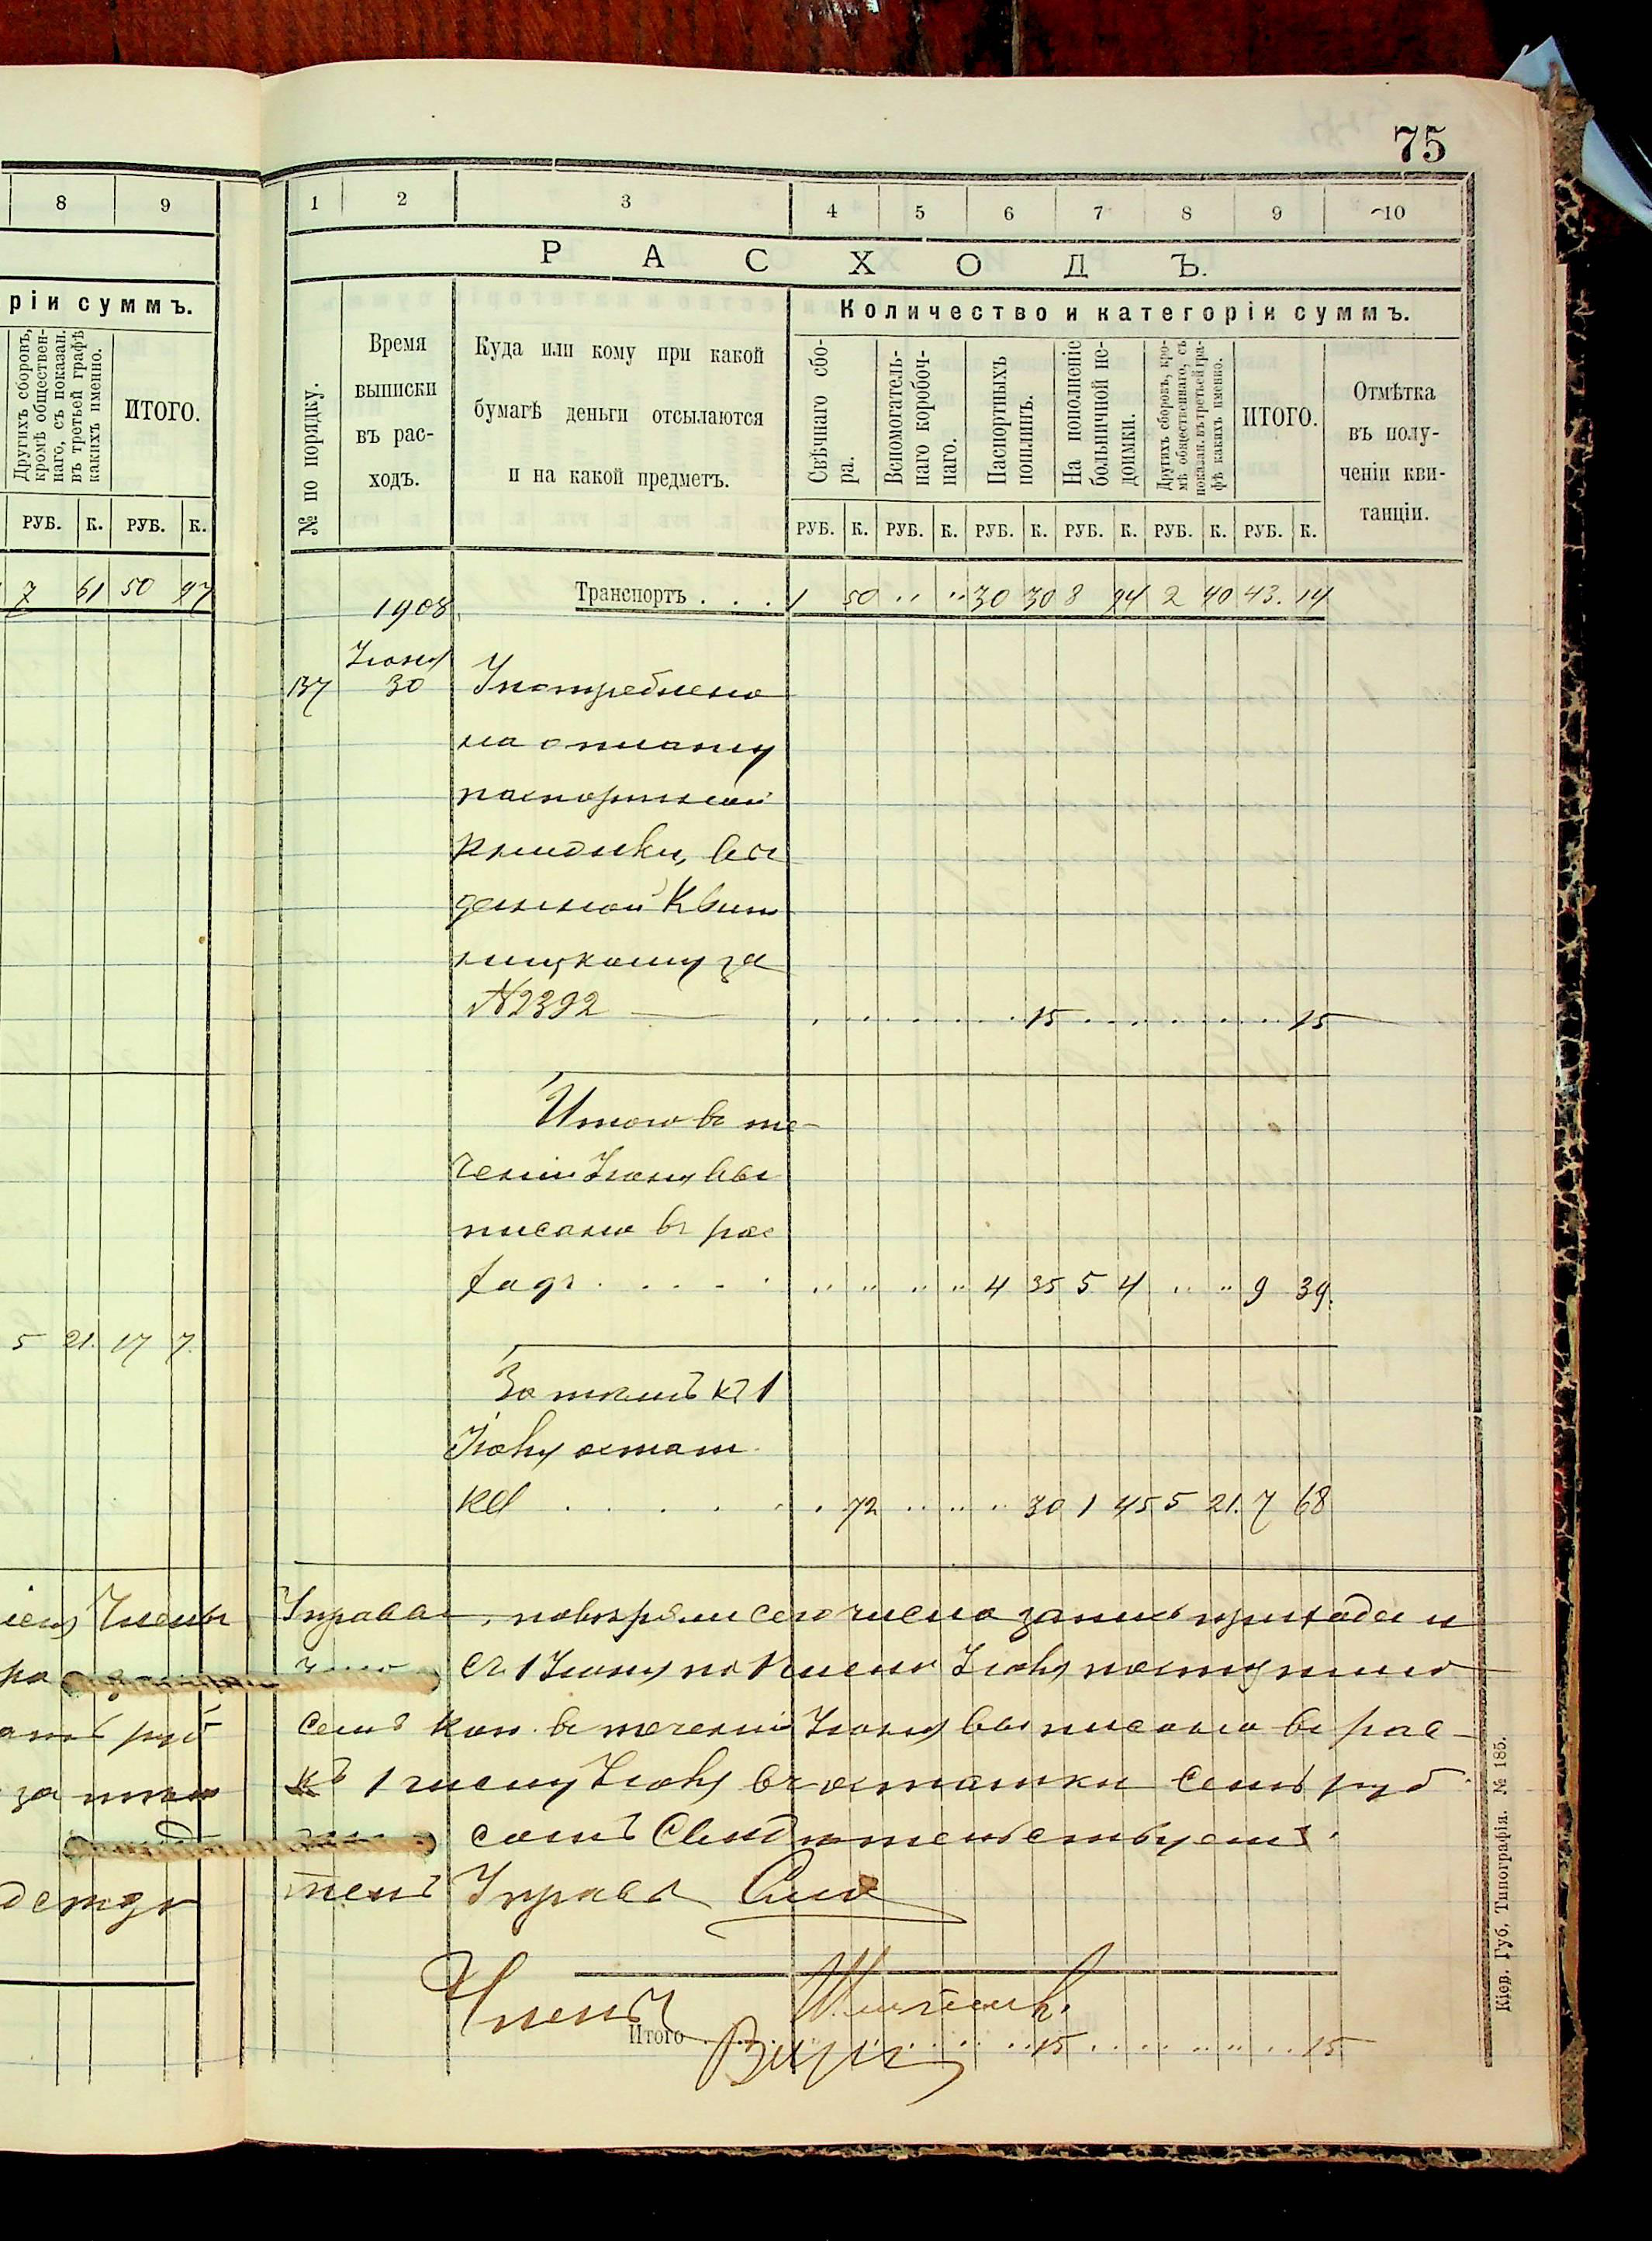 75
8 9
1 2 3 4 5 6 7 8 9 10
РАСХОДЪ.
ріи суммъ.
Количество и категоріи суммъ.
Другихъ сборовъ,
кромѣ обществен-
наго, съ показан.
въ третьей графѣ
какихъ именно.
ИТОГО.
№ по порядку.
Время
выписки
въ рас-
ходъ.
Куда или кому при какой
бумагѣ деньги отсылаются
и на какой предметъ.
Свѣчнаго сбо-
ра.
Вспомогатель-
наго коробоч-
наго.
Паспортныхъ
пошлинъ.
На пополненіе
больничной не-
доимки.
Другихъ сборовъ, кро-
мѣ общественнаго, съ
показан. въ третьей гра-
фѣ какихъ именно.
ИТОГО.
Отмѣтка
въ полу-
ченіи кви-
танціи.
РУБ. К. РУБ. К.
РУБ. К. РУБ. К. РУБ. К. РУБ. К. РУБ. К. РУБ. К.
7 61 50 97
Транспортъ . . . 1 50 " " 30 30 8 94 2 40 43. 14
1908
Іюня
137 30 Употреблено
на оплату
паспортной
книжки, вы
данной Квит
ницкому за
№ 2392 — 15 15
Итого въ те-
ченіи Іюня вы
писано въ рас
ходъ . . . . " " " " 4 35 5 4 " " 9 39.
5 21. 17 7.
За тѣмъ къ 1
Іюлю остат
ка . . . . . 72 " " " 30 1 45 5 21. 7 68
Управы, повѣряли сего числа запись прихода и
съ 1 Іюня по 1 число Іюля поступило
семь коп. въ теченіи Іюня выписано въ рас-
за
къ 1 числу Іюля въ остатки семь руб.
семъ Свидѣтельствуемъ.
Управы
Членъ
Итого . . . 15 . . . . 15
Кіев. Губ. Типографія. № 185.